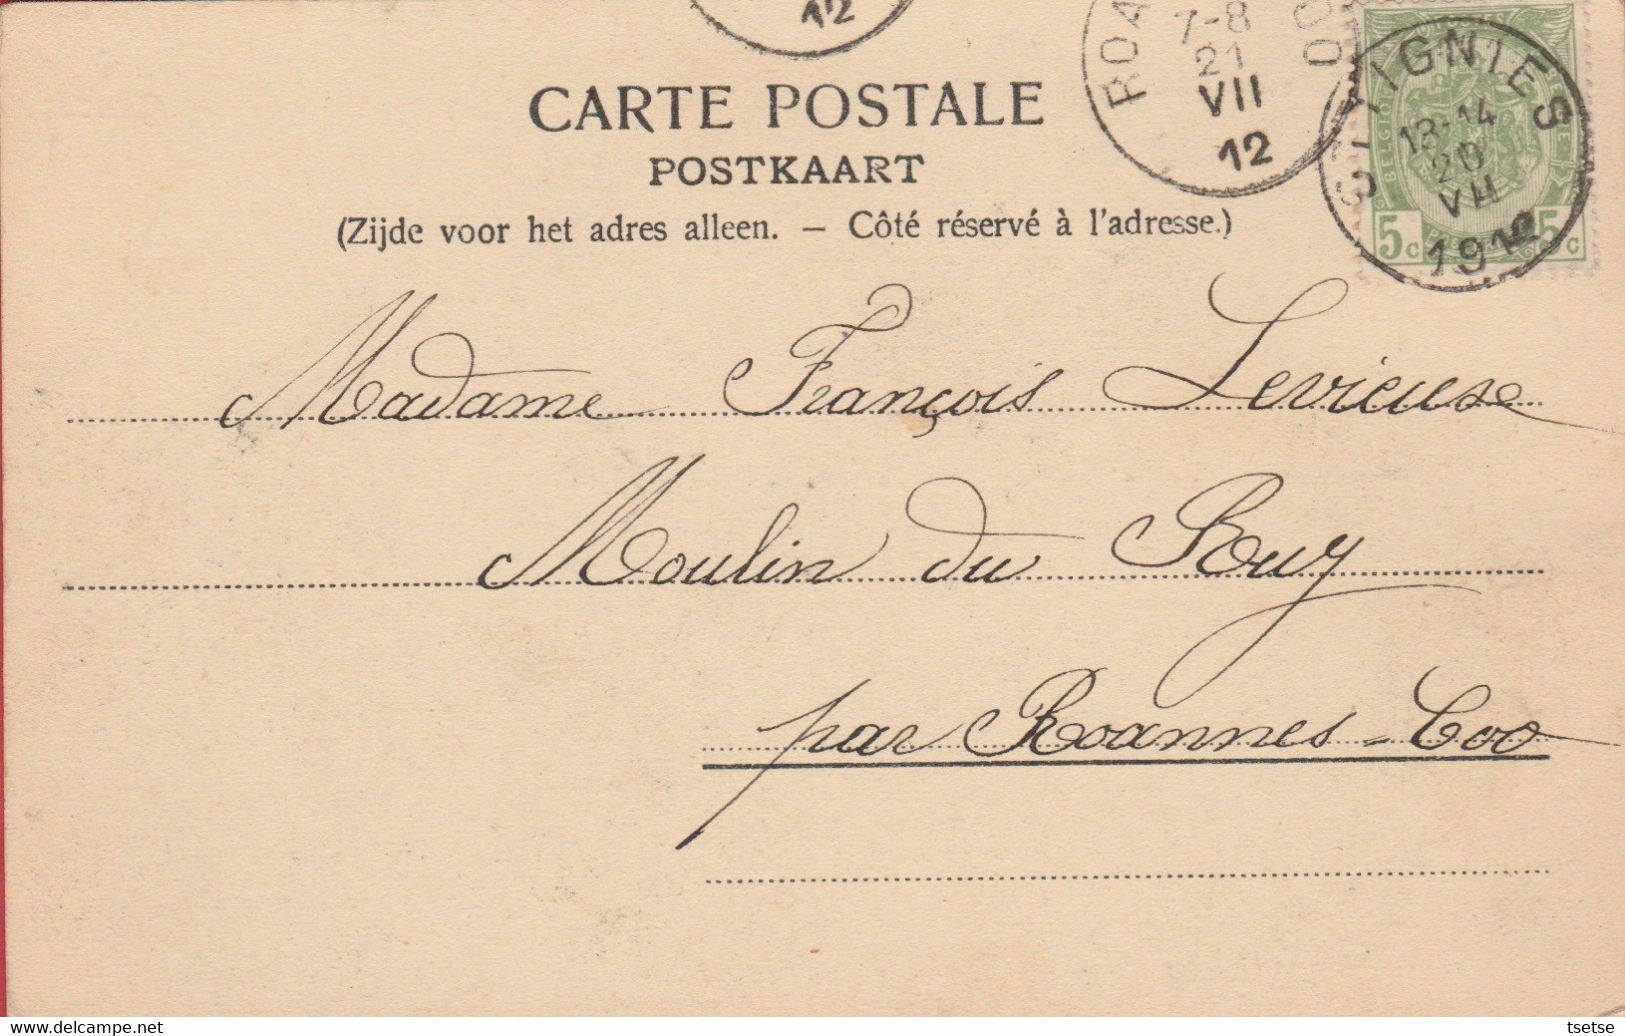 12
ROA OO
7-8
21
VII
12
STIGNIES
13-14
20
VII
1912
5c 5c
CARTE POSTALE
POSTKAART
(Zijde voor het adres alleen. — Côté réservé à l'adresse.)
Madame François Levieuse
Moulin du Ruy
par Roannes-Coo
www.delcampe.net
tsetse